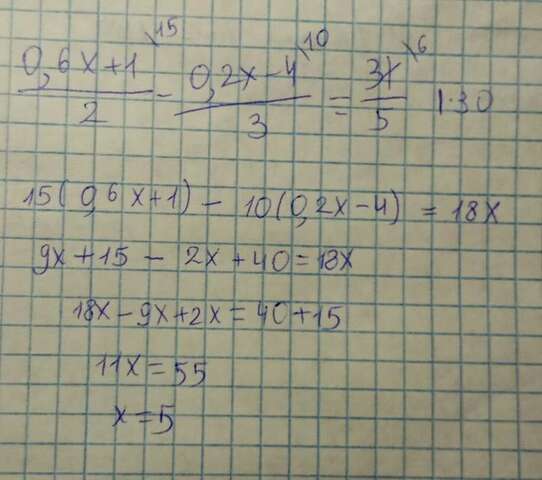 (0,6x+1)/2 \15 - (0,2x-4)/3 \10 = 3x/5 \6 |·30
15(0,6x+1) - 10(0,2x-4) = 18x
9x+15 - 2x+40=18x
18x-9x+2x=40+15
11x=55
x=5